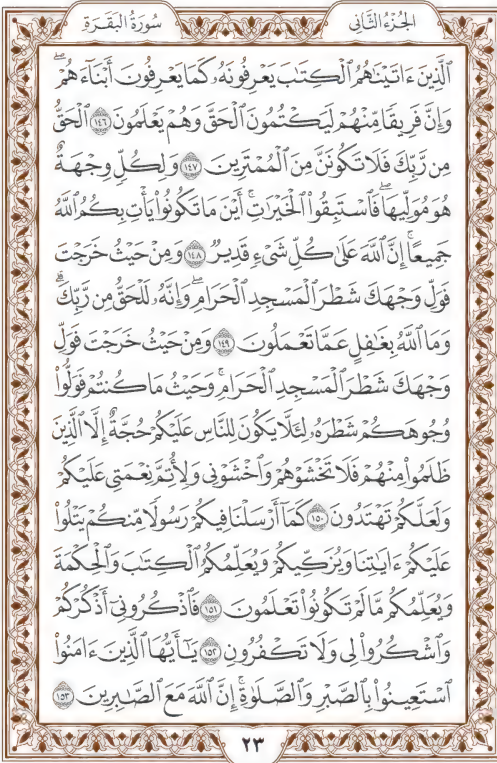 سُورَةُ البَقَرَةِ
الجُزْءُ الثَّانِي
ٱلَّذِينَ ءَاتَيْنَٰهُمُ ٱلْكِتَٰبَ يَعْرِفُونَهُۥ كَمَا يَعْرِفُونَ أَبْنَآءَهُمْ ۖ
وَإِنَّ فَرِيقًا مِّنْهُمْ لَيَكْتُمُونَ ٱلْحَقَّ وَهُمْ يَعْلَمُونَ ١٤٦ ٱلْحَقُّ
مِن رَّبِّكَ فَلَا تَكُونَنَّ مِنَ ٱلْمُمْتَرِينَ ١٤٧ وَلِكُلٍّ وِجْهَةٌ
هُوَ مُوَلِّيهَا ۖ فَٱسْتَبِقُوا۟ ٱلْخَيْرَٰتِ ۚ أَيْنَ مَا تَكُونُوا۟ يَأْتِ بِكُمُ ٱللَّهُ
جَمِيعًا ۚ إِنَّ ٱللَّهَ عَلَىٰ كُلِّ شَىْءٍ قَدِيرٌ ١٤٨ وَمِنْ حَيْثُ خَرَجْتَ
فَوَلِّ وَجْهَكَ شَطْرَ ٱلْمَسْجِدِ ٱلْحَرَامِ ۖ وَإِنَّهُۥ لَلْحَقُّ مِن رَّبِّكَ ۗ
وَمَا ٱللَّهُ بِغَٰفِلٍ عَمَّا تَعْمَلُونَ ١٤٩ وَمِنْ حَيْثُ خَرَجْتَ فَوَلِّ
وَجْهَكَ شَطْرَ ٱلْمَسْجِدِ ٱلْحَرَامِ ۚ وَحَيْثُ مَا كُنتُمْ فَوَلُّوا۟
وُجُوهَكُمْ شَطْرَهُۥ لِئَلَّا يَكُونَ لِلنَّاسِ عَلَيْكُمْ حُجَّةٌ إِلَّا ٱلَّذِينَ
ظَلَمُوا۟ مِنْهُمْ فَلَا تَخْشَوْهُمْ وَٱخْشَوْنِى وَلِأُتِمَّ نِعْمَتِى عَلَيْكُمْ
وَلَعَلَّكُمْ تَهْتَدُونَ ١٥٠ كَمَآ أَرْسَلْنَا فِيكُمْ رَسُولًا مِّنكُمْ يَتْلُوا۟
عَلَيْكُمْ ءَايَٰتِنَا وَيُزَكِّيكُمْ وَيُعَلِّمُكُمُ ٱلْكِتَٰبَ وَٱلْحِكْمَةَ
وَيُعَلِّمُكُم مَّا لَمْ تَكُونُوا۟ تَعْلَمُونَ ١٥١ فَٱذْكُرُونِىٓ أَذْكُرْكُمْ
وَٱشْكُرُوا۟ لِى وَلَا تَكْفُرُونِ ١٥٢ يَٰٓأَيُّهَا ٱلَّذِينَ ءَامَنُوا۟
ٱسْتَعِينُوا۟ بِٱلصَّبْرِ وَٱلصَّلَوٰةِ ۚ إِنَّ ٱللَّهَ مَعَ ٱلصَّٰبِرِينَ ١٥٣
٢٣